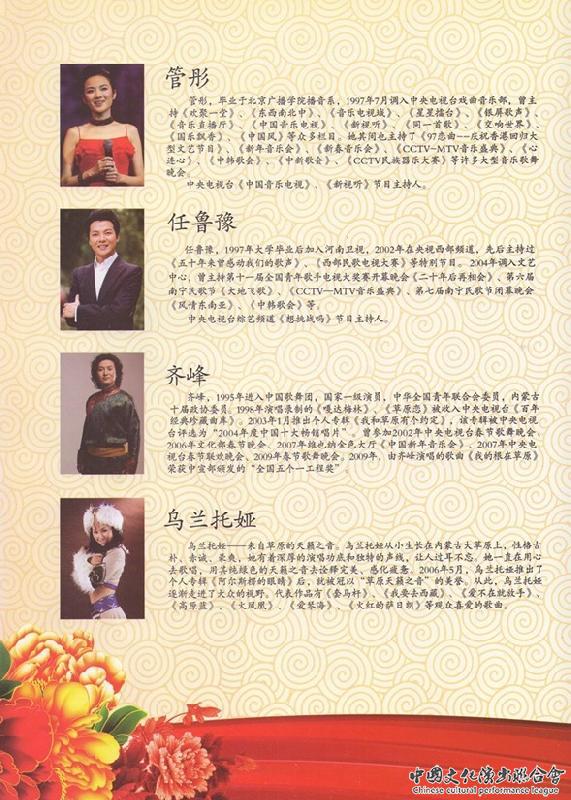 管彤
管彤，毕业于北京广播学院播音系，1997年7月调入中央电视台戏曲音乐部，曾主
持《欢聚一堂》、《东西南北中》、《音乐电视城》、《星星擂台》、《银屏歌声》、
《音乐直播厅》、《中国音乐电视》、《新视听》、《同一首歌》、《空响世界》、
《国乐飘香》、《中国风》等众多栏目。她其间也主持了《97恋曲--庆祝香港回归大
型文艺节目》、《新年音乐会》、《新春音乐会》、《CCTV-MTV音乐盛典》、《心
连心》、《中韩歌会》、《中新歌会》、《CCTV民族器乐大赛》等许多大型音乐歌舞
晚会。
中央电视台《中国音乐电视》、《新视听》节目主持人。
任鲁豫
任鲁豫，1997年大学毕业后加入河南卫视，2002年在央视西部频道，先后主持过
《五十年来曾感动我们的歌声》、《西部民歌电视大赛》等特别节目。2004年调入文艺
中心，曾主持第十一届全国青年歌手电视大奖赛开幕晚会《二十年后再相会》、第六届
南宁民歌节《大地飞歌》、《CCTV—MTV音乐盛典》、第七届南宁民歌节闭幕晚会
《风情东南亚》、《中韩歌会》等。
中央电视台综艺频道《想挑战吗》节目主持人。
齐峰
齐峰，1995年进入中国歌舞团，国家一级演员，中华全国青年联合会委员，内蒙古
十届政协委员。1998年演唱录制的《嘎达梅林》、《草原恋》被收入中央电视台《百年
经典珍藏曲库》。2003年1月推出个人专辑《我和草原有个约定》，该专辑被中央电视
台评选为“2004年度中国十大畅销唱片”。曾参加2002年中央电视台春节歌舞晚会、
2006年文化部春节晚会、2007年维也纳金色大厅《中国新年音乐会》、2007年中央电
视台春节联欢晚会、2009年春节歌舞晚会。2009年，由齐峰演唱的歌曲《我的根在草原》
荣获中宣部颁发的“全国五个一工程奖”。
乌兰托娅
乌兰托娅——来自草原的天籁之音。乌兰托娅从小生长在内蒙古大草原上，性格古
朴、赤诚、豪爽，她有着深厚的演唱功底和独特的声线，让人过耳不忘，她一直在用心
去歌唱，用其纯绿色的天籁之音去诠释完美、感化疲惫。2006年5月，乌兰托娅推出了
个人专辑《阿尔斯楞的眼睛》后，就被冠以“草原天籁之音”的美誉。从此，乌兰托娅
逐渐走进了大众的视野。代表作品有《套马杆》、《我要去西藏》、《爱不在就放手》、
《高原蓝》、《火凤凰》、《爱琴海》、《火红的萨日朗》等观众喜爱的歌曲。
中國文化演出聯合會
Chinese cultural performance league